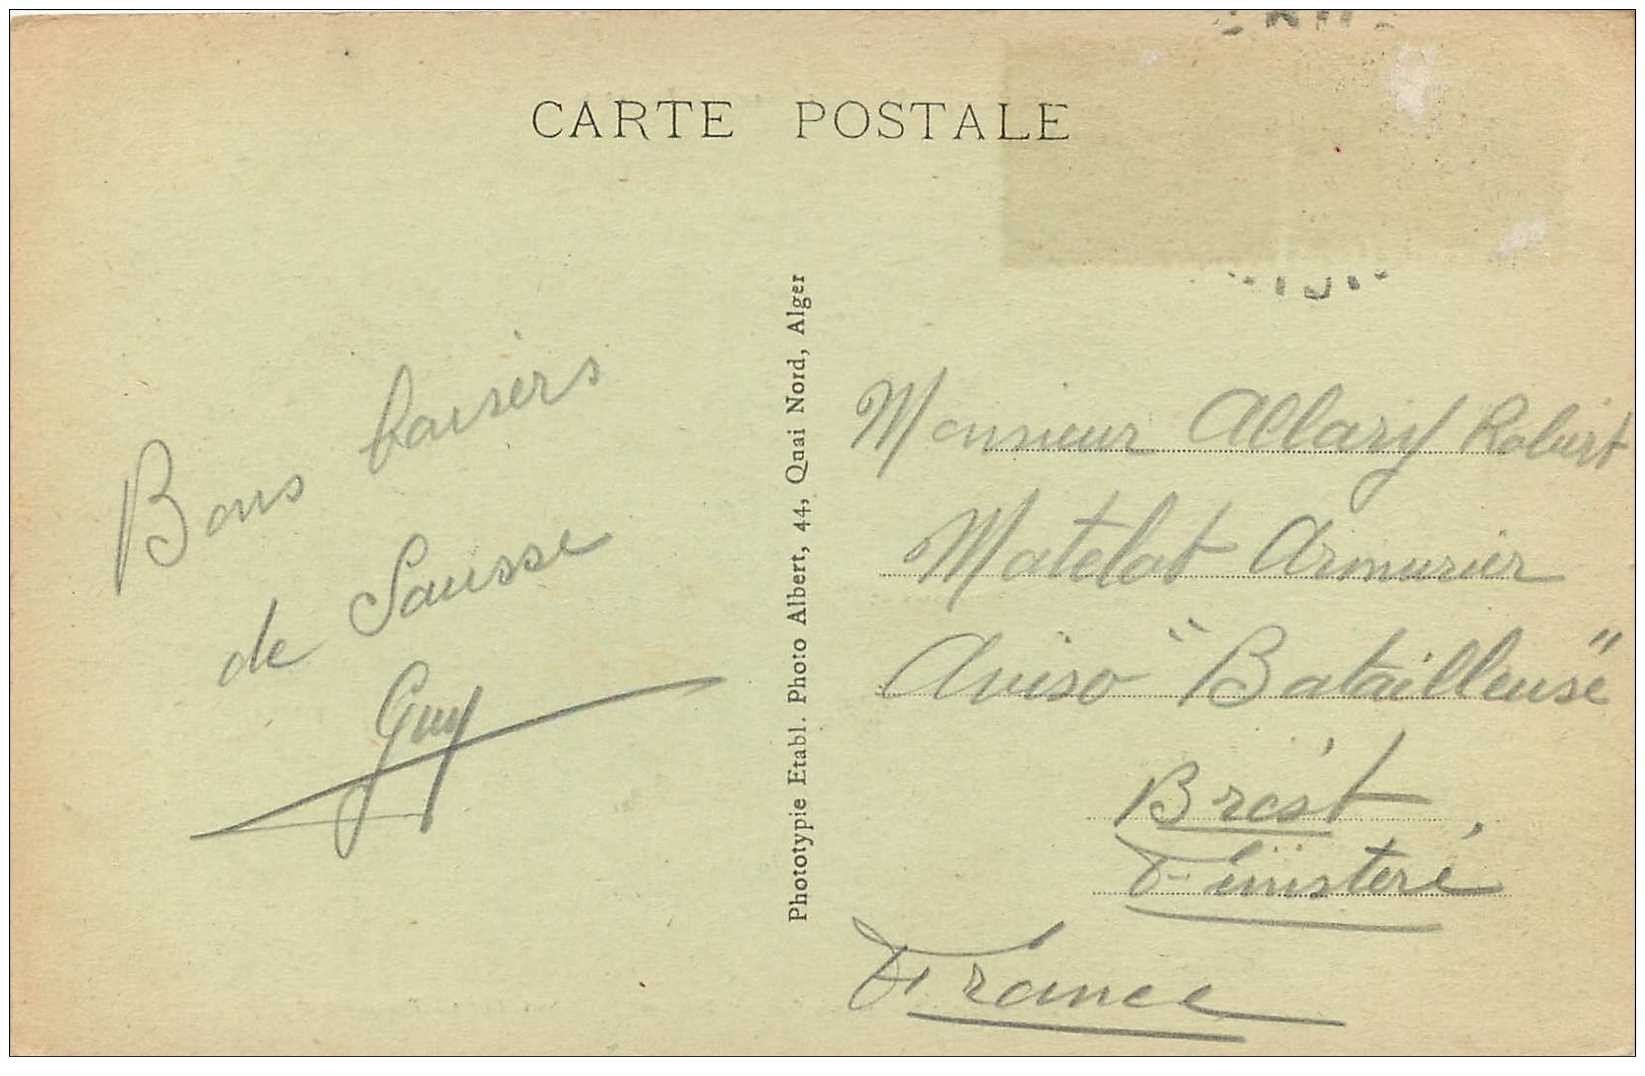 CARTE POSTALE
Bons baisers
de Sousse
Guy
Phototypie Etabl. Photo Albert, 44, Quai Nord, Alger
Monsieur Allary Robert
Matelot Armurier
Aviso "Batailleuse"
Brest
Finistère
France